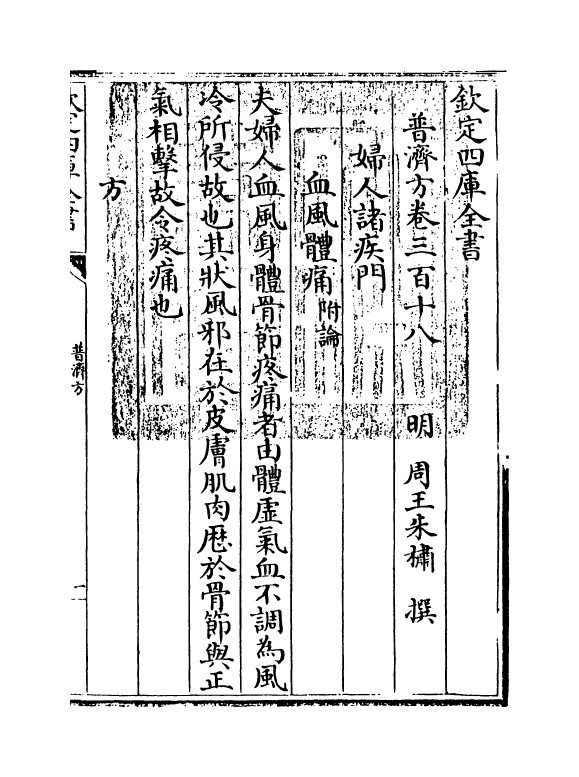 欽定四庫全書
普濟方卷三百十八　明　周王朱橚　撰
婦人諸疾門
血風體痛附論
夫婦人血風身體骨節疼痛者由體虛氣血不調為風
冷所侵故也其狀風邪在於皮膚肌肉歴於骨節與正
氣相擊故令疼痛也
方
欽定四庫全書
普濟方
一